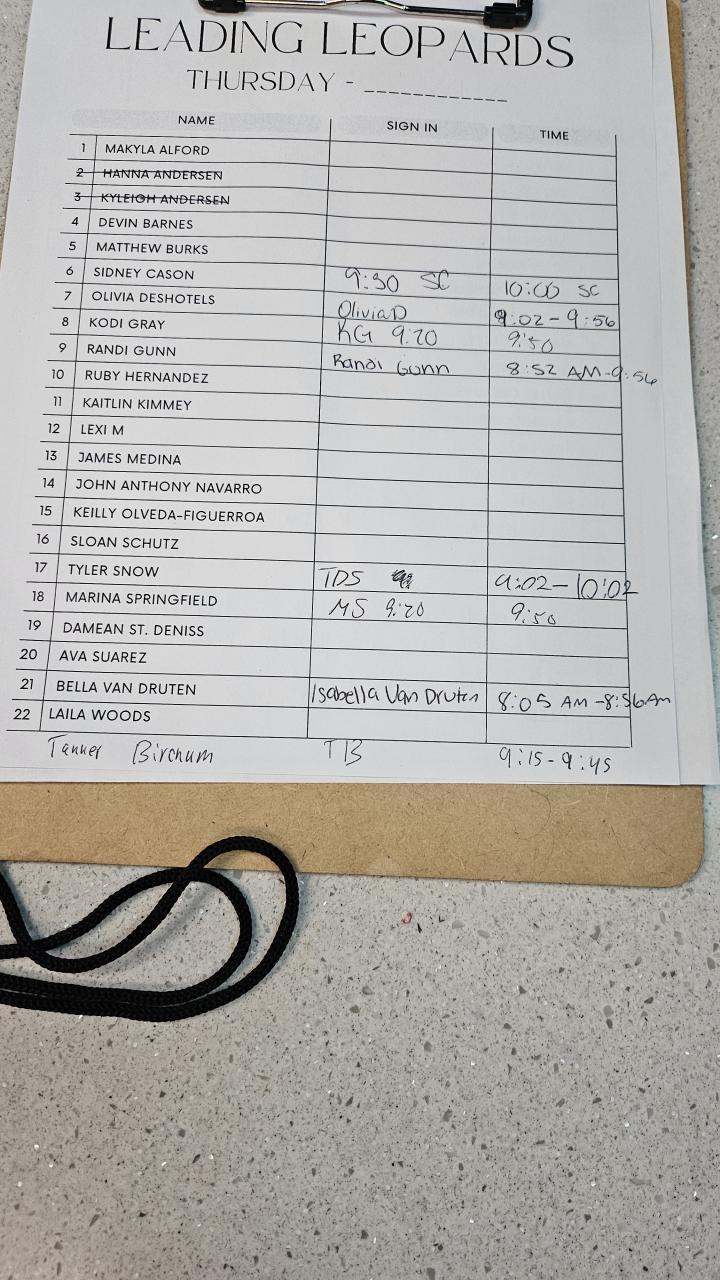 LEADING LEOPARDS
THURSDAY - ____________
NAME SIGN IN TIME
1 MAKYLA ALFORD
2 HANNA ANDERSEN
3 KYLEIGH ANDERSEN
4 DEVIN BARNES
5 MATTHEW BURKS
6 SIDNEY CASON 9:30 SC 10:00 SC
7 OLIVIA DESHOTELS OliviaD 9:02-9:56
8 KODI GRAY KG 9:20 9:50
9 RANDI GUNN Randi Gunn 8:52 AM-9:56
10 RUBY HERNANDEZ
11 KAITLIN KIMMEY
12 LEXI M
13 JAMES MEDINA
14 JOHN ANTHONY NAVARRO
15 KEILLY OLVEDA-FIGUERROA
16 SLOAN SCHUTZ
17 TYLER SNOW TDS 9:02-10:02
18 MARINA SPRINGFIELD MS 9:20 9:50
19 DAMEAN ST. DENISS
20 AVA SUAREZ
21 BELLA VAN DRUTEN Isabella Van Druten 8:05 AM-8:56Am
22 LAILA WOODS
Tanner Birchum TB 9:15-9:45